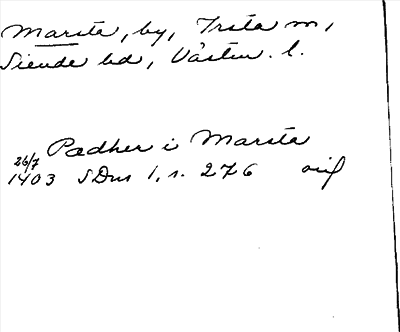 Marsta, by, Irsta sn,
Siende hd, Västm. l.
Pædher i Marsta
26/7
1403 SDns 1, s. 276 oif